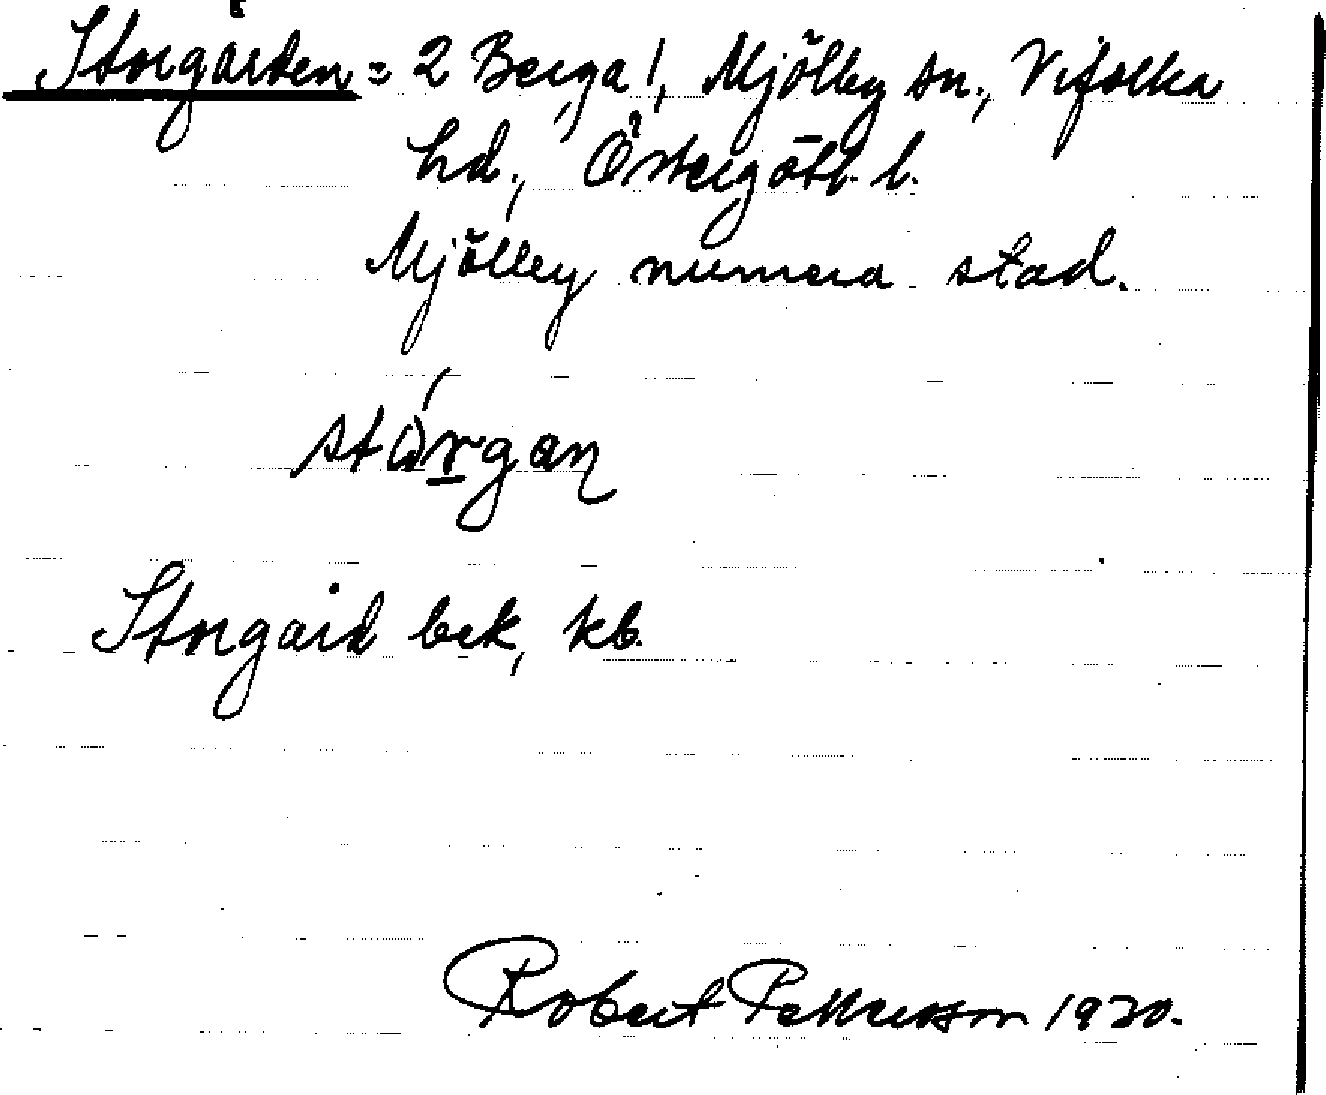 Storgården = 2 Berga!, Mjölby sn., Vifolka
hd., Östergötl. l.
Mjölby numera stad.
Storgård bek, kb.
Robert Pettersson 1920.